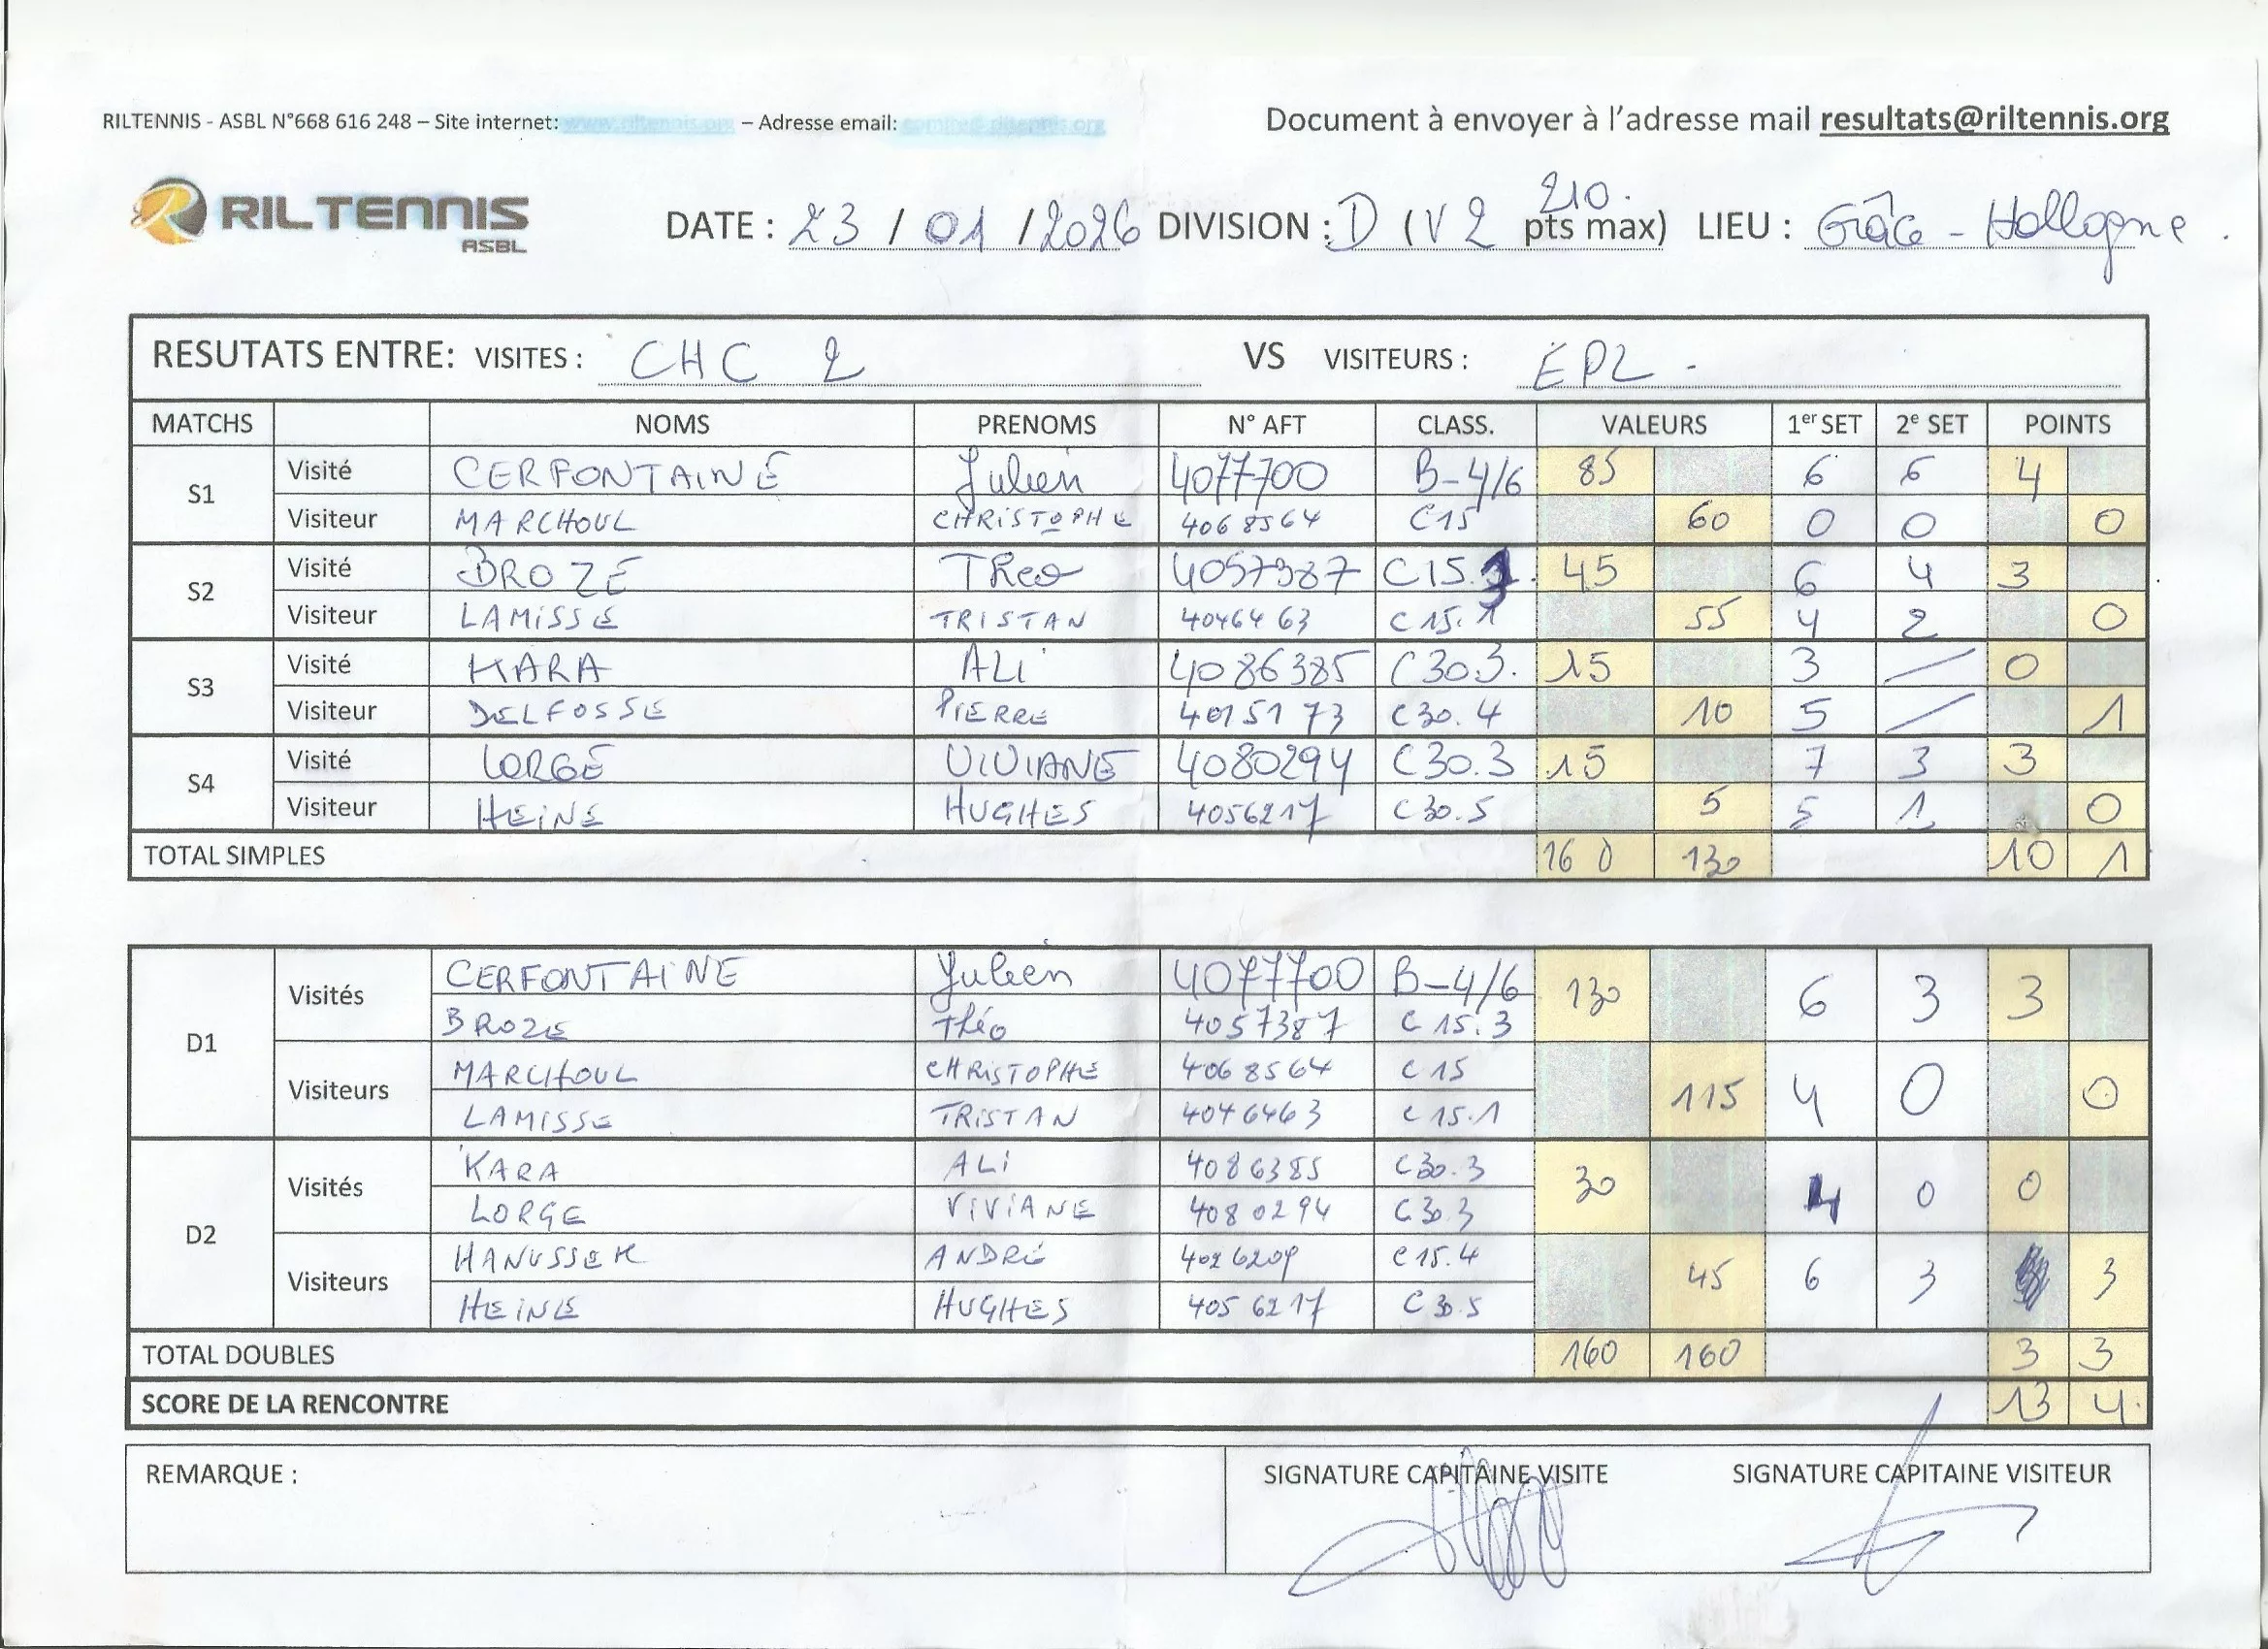 RILTENNIS - ASBL N°668 616 248 – Site internet: www.riltennis.org – Adresse email: comite@riltennis.org
Document à envoyer à l'adresse mail resultats@riltennis.org
RILTENNIS ASBL
DATE : 23 / 01 / 2026 DIVISION : D (V2 210. pts max) LIEU : Grâce - Hollogne.
RESUTATS ENTRE: VISITES : CHC 2 VS VISITEURS : EPL -
MATCHS NOMS PRENOMS N° AFT CLASS. VALEURS 1er SET 2e SET POINTS
S1 Visité CERFONTAINE Julien 4077700 B-4/6 85 6 6 4
Visiteur MARCHOUL CHRISTOPHE 4068564 C15 60 0 0 0
S2 Visité BROZE Theo 4057387 C15.3 45 6 4 3
Visiteur LAMISSE TRISTAN 4046463 C15.1 55 4 2 0
S3 Visité KARA ALI 4086385 C30.3. 15 3 / 0
Visiteur DELFOSSE PIERRE 4015173 C30.4 10 5 / 1
S4 Visité LORGE VIVIANE 4080294 C30.3 15 7 3 3
Visiteur HEINE HUGHES 4056217 C30.5 5 5 1 0
TOTAL SIMPLES 160 130 10 1
D1 Visités CERFONTAINE Julien 4077700 B-4/6 130 6 3 3
BROZE Théo 4057387 C15.3
Visiteurs MARCHOUL CHRISTOPHE 4068564 C15 115 4 0 0
LAMISSE TRISTAN 4046463 C15.1
D2 Visités KARA ALI 4086385 C30.3 30 4 0 0
LORGE VIVIANE 4080294 C30.3
Visiteurs HANUSSEK ANDRÉ 4026209 C15.4 45 6 3 3
HEINE HUGHES 4056217 C30.5
TOTAL DOUBLES 160 160 3 3
SCORE DE LA RENCONTRE 13 4.
REMARQUE :
SIGNATURE CAPITAINE VISITE SIGNATURE CAPITAINE VISITEUR